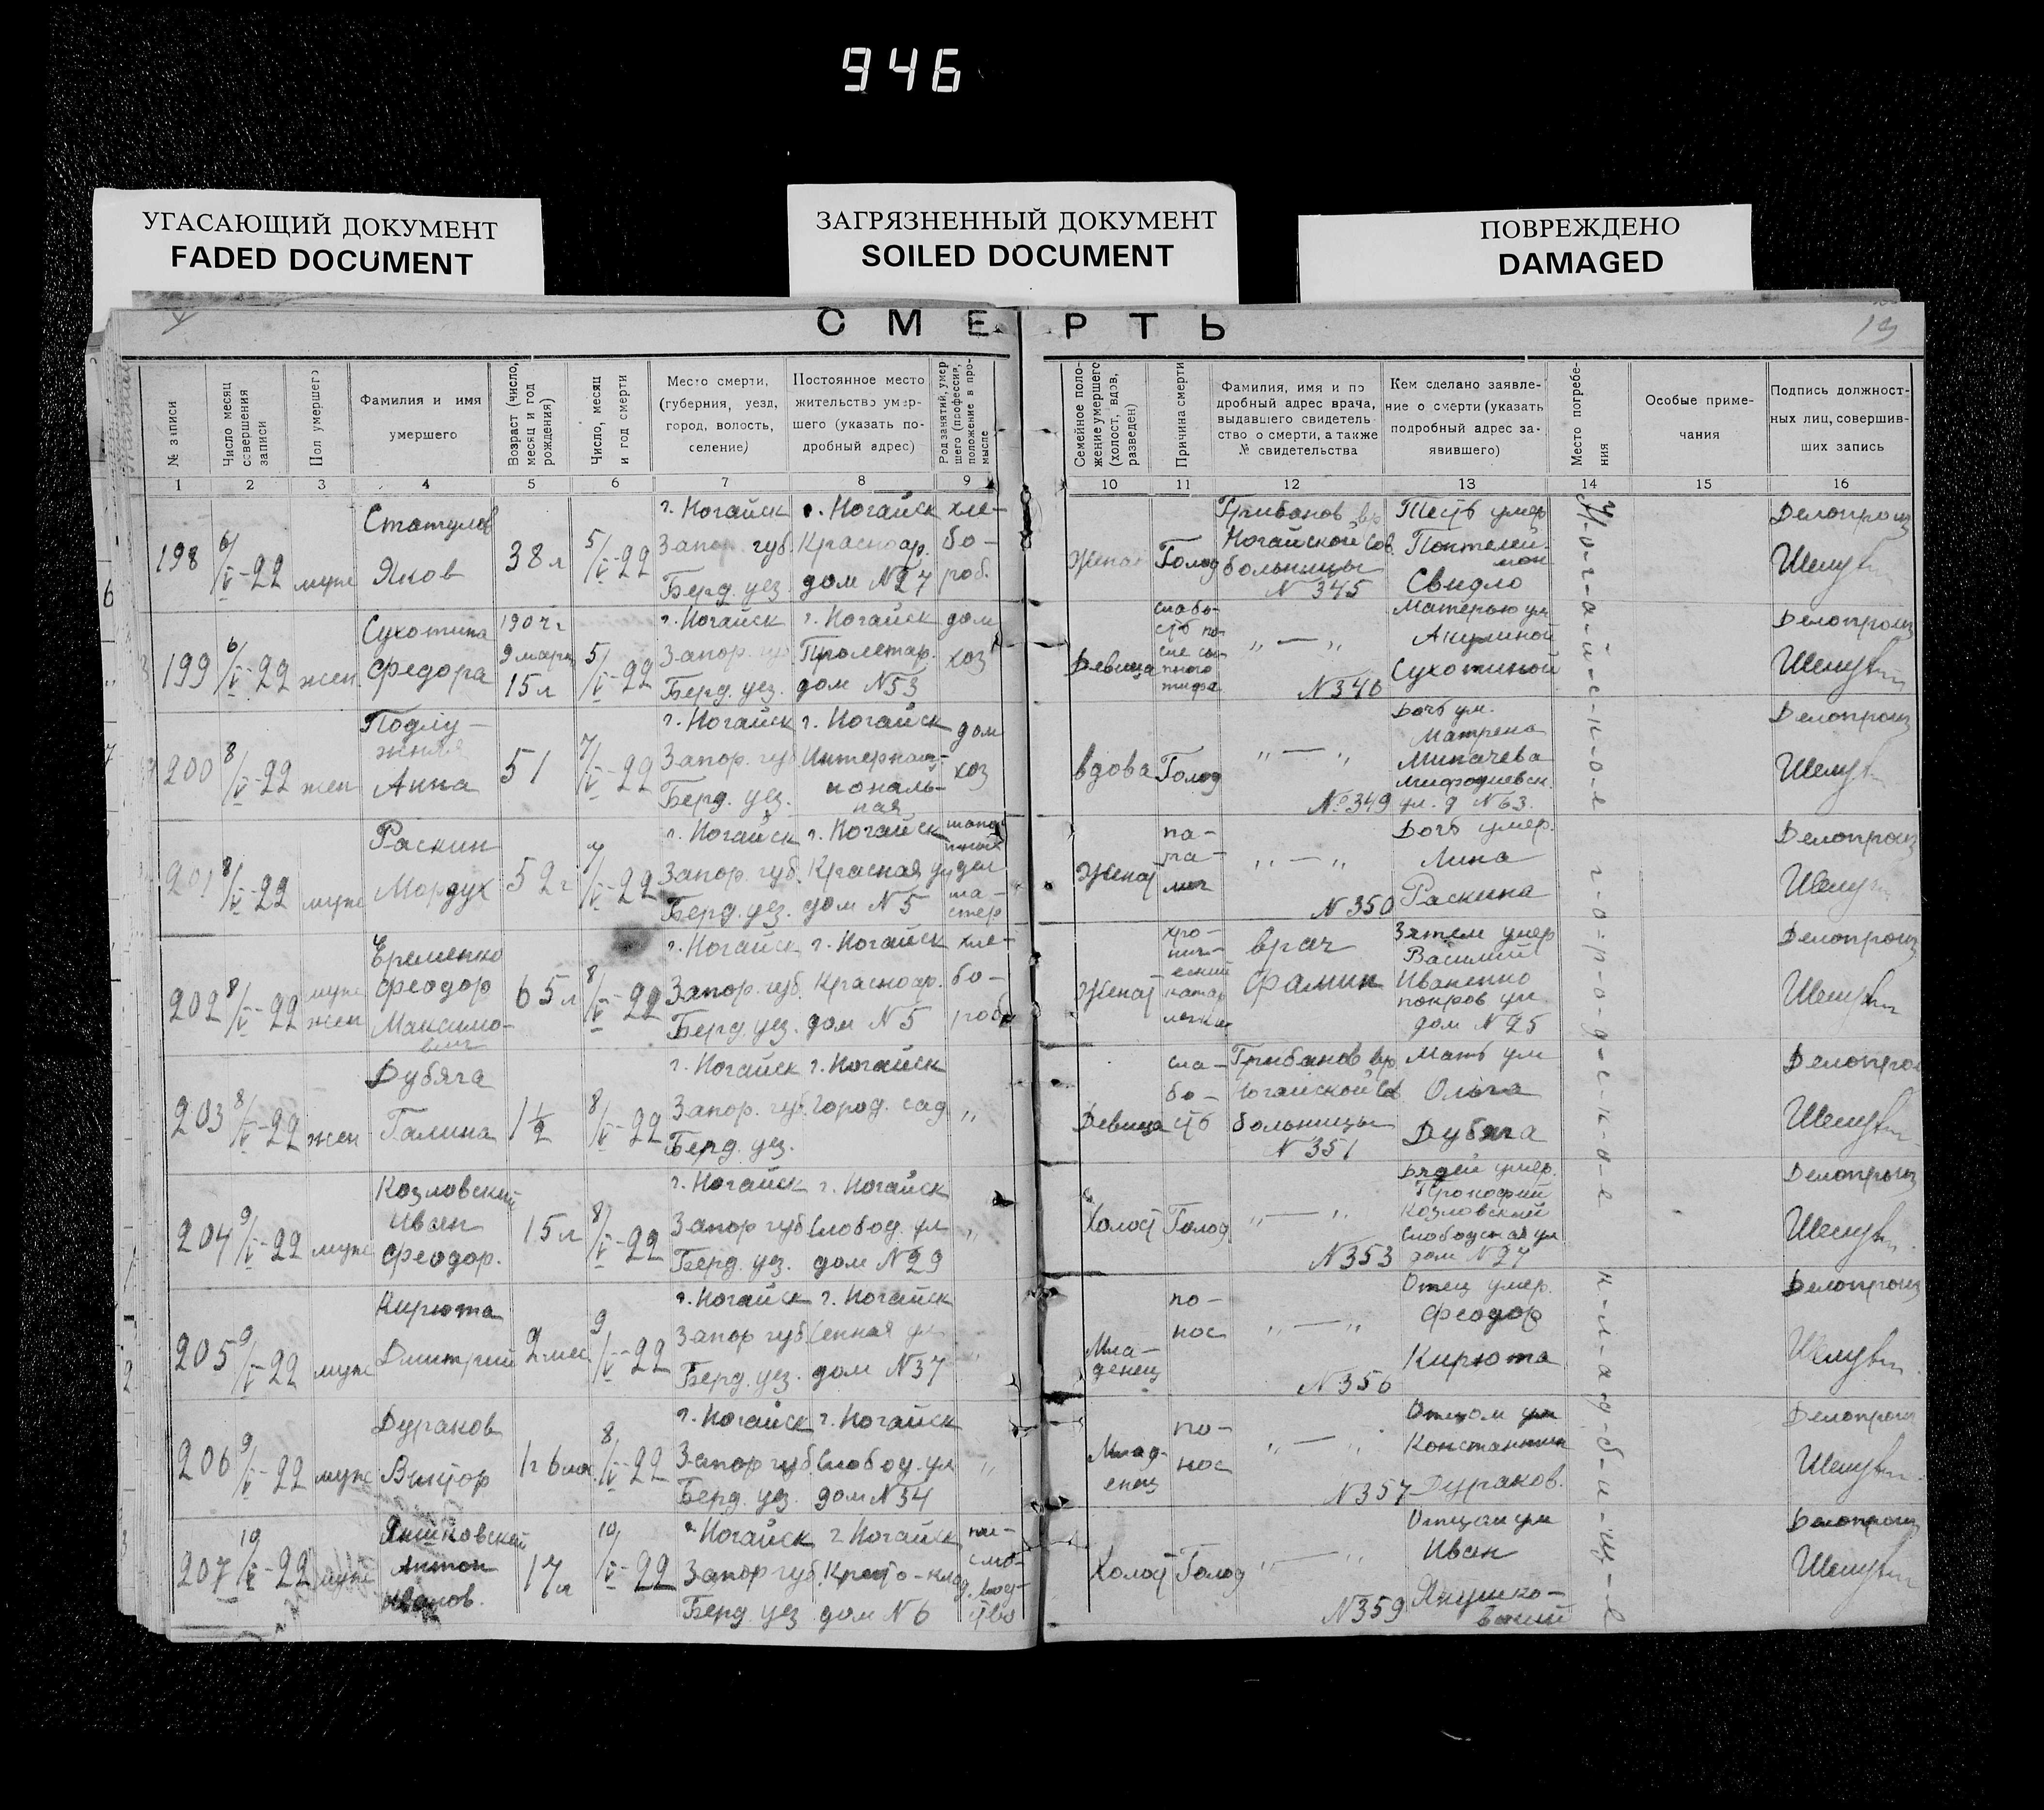 946
УГАСАЮЩИЙ ДОКУМЕНТ
FADED DOCUMENT
ЗАГРЯЗНЕННЫЙ ДОКУМЕНТ
SOILED DOCUMENT
ПОВРЕЖДЕНО
DAMAGED
СМЕРТЬ
19
№ записи
Число месяц совершения записи
Пол умершего
Фамилия и имя умершего
Возраст (число, месяц и год рождения)
Число, месяц и год смерти
Место смерти, (губерния, уезд, город, волость, селение)
Постоянное место жительство умершего (указать подробный адрес)
Род занятий, умершего (профессия, положение в промысле
Семейное положение умершего (холост, вдов, разведен)
Причина смерти
Фамилия, имя и подробный адрес врача, выдавшего свидетельство о смерти, а также № свидетельства
Кем сделано заявление о смерти (указать подробный адрес заявившего)
Место погребения
Особые примечания
Подпись должностных лиц, совершивших запись
1 2 3 4 5 6 7 8 9 10 11 12 13 14 15 16
198 6/V-22 муж Статулов Яков 38 л 5/V-22 г. Ногайск Запор. губ. Берд. уез. г. Ногайск Красноар. дом N 27 хлебороб. Женат Голод Грибанов вр. Ногайской Сов. больницы N 345 Тесть умер Свидло Делопроиз
199 6/V-22 жен. Сухотина Федора 1907 г 9 марта 15 л 5/V-22 г. Ногайск Запор. Берд. уез. г. Ногайск Пролетар. дом N 53 дом хоз Девица слабость после сыпного тифа „ — „ N 346 Матерью ум Акулиной Сухотиной Делопроиз
200 8/V-22 жен Подлужная Анна 51 7/V-22 г. Ногайск Запор. губ Берд. уез. г. Ногайск Интернациональная дом хоз вдова Голод „ — „ № 349 Дочь ум. Матрена Мифодиевск. ул. д N 63. Делопроиз
201 8/V-22 муж Раскин Мордух 52 г 7/V-22 г. Ногайск Запор. губ. Берд. уез. г. Ногайск Красная дом N 5 мастер Женат „ — „ N 350 Дочь умер. Лина Раскина Делопроиз
202 8/V-22 муж жен Еременко Феодор Максимович 65 л 8/V-22 г. Ногайск Запор. губ. Берд. уез. г. Ногайск Красноар. дом N 5 хлебороб Женат хронический катар легких врач Фамин Зятем умер Василий Иваненко покров ул дом N 25 Делопроиз
203 8/V-22 жен Дубяга Галина 1½ 8/V-22 г. Ногайск Запор. губ Берд. уез. г. Ногайск Город. сад „ Девица слабость Грибанов вр. Ногайской Сов больницы N 351 Мать ум Ольга Дубяга Делопроиз
204 9/V-22 муж Козловский Иван Феодор. 15 л 8/V-22 г. Ногайск Запор губ Берд. уез. г. Ногайск Слобод. ул дом N 29 „ Холост Голод „ — „ N 353 Дядей умер. Прокофий Козловский Слободская ул дом N 27 Делопроиз
205 9/V-22 муж Кирюта Дмитрий 2 мес 9/V-22 г. Ногайск Запор губ Берд. уез. г. Ногайск Сенная ул дом N 37 Младенец понос „ — „ N 356 Отец умер. Феодор Кирюта Делопроиз
206 9/V-22 муж Дураков Виктор 1 г 6 мес 8/V-22 г. Ногайск Запор губ Берд. уез. г. Ногайск Слобод. ул дом N 34 „ Младенец понос „ — „ N 357 Отцом ум Константин Дураков. Делопроиз
207 10/V-22 муж Антон Иванов. 17 л 10/V-22 г. Ногайск Запор губ. Берд. уез г. Ногайск дом N 6 Холост Голод „ — „ N 359 Отцом ум Иван Янушковский Делопроиз
Н-о-г-а-й-с-к-о-е г-о-р-о-д-с-к-о-е к-л-а-д-б-и-щ-е